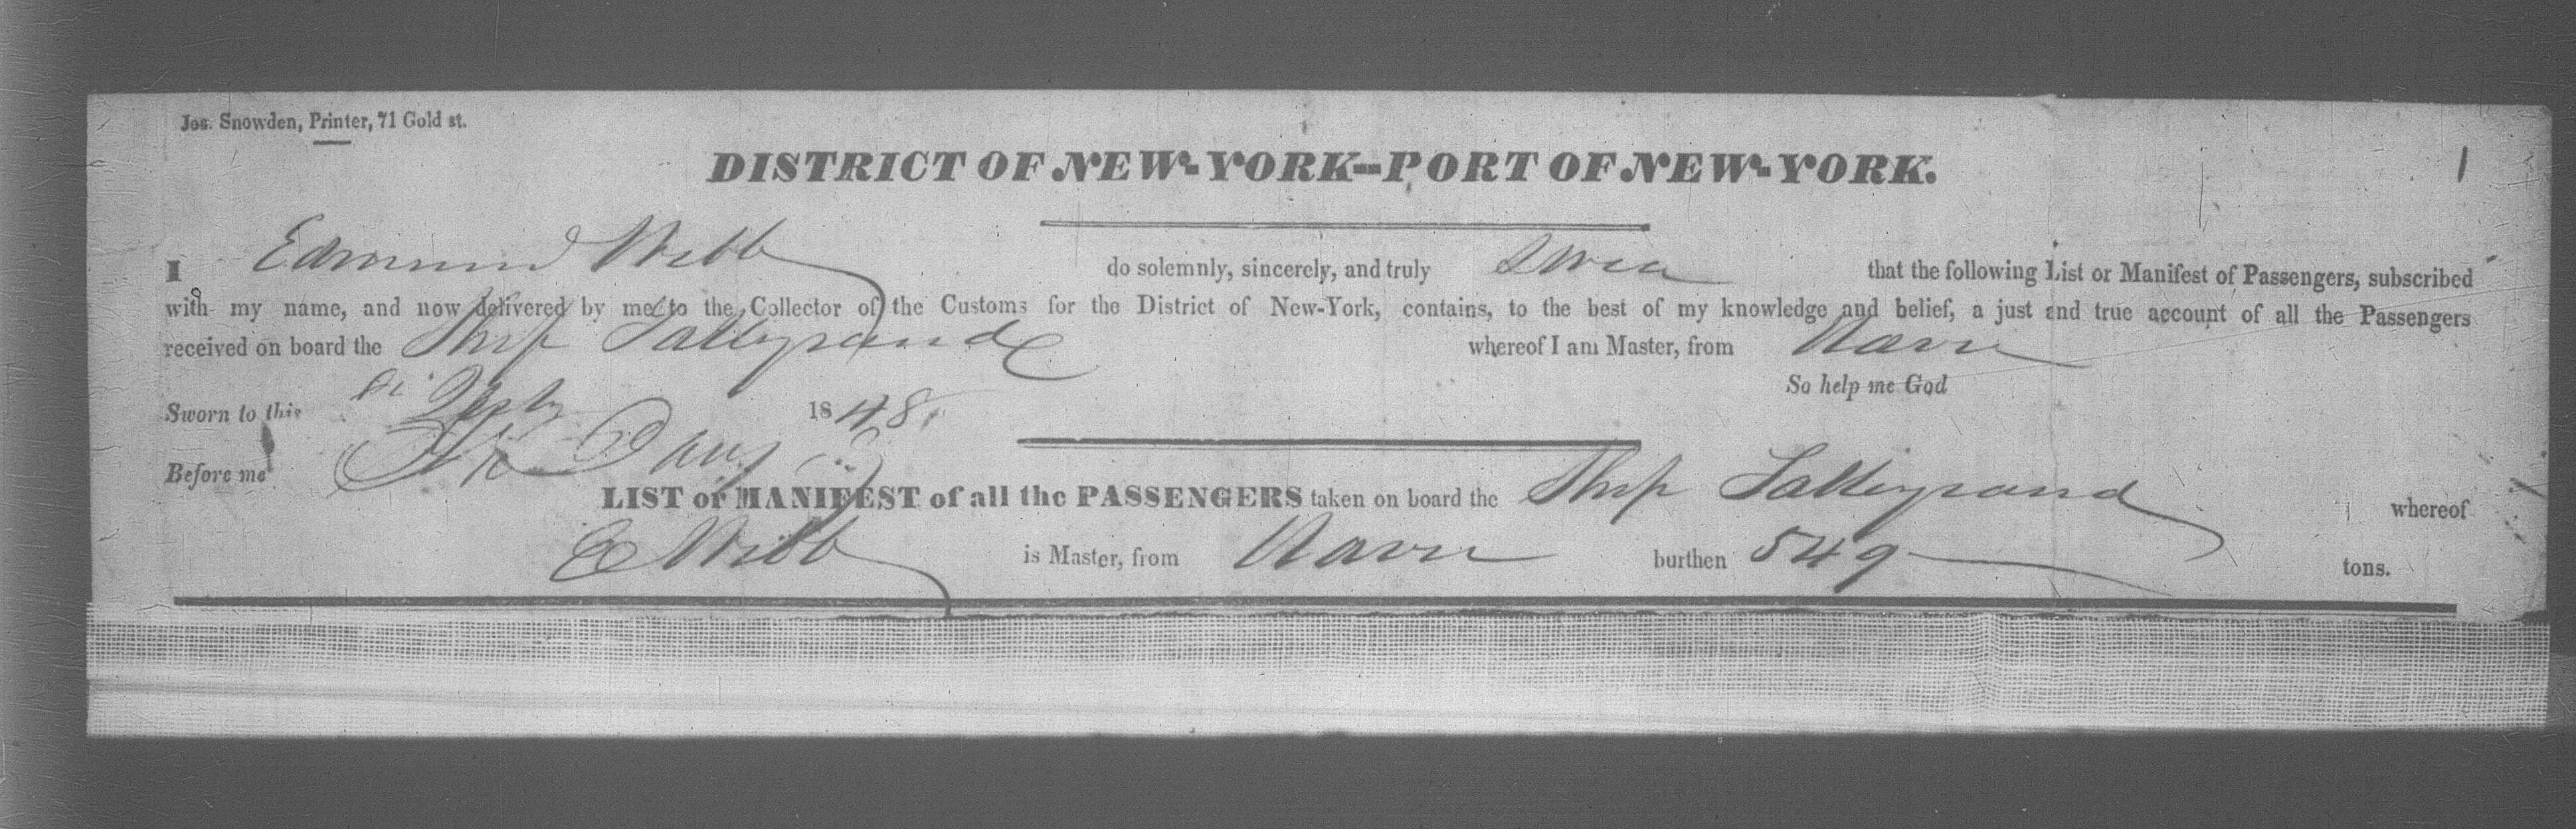 Jos. Snowden, Printer, 71 Gold st.
DISTRICT OF NEW-YORK--PORT OF NEW-YORK.
1
I Edmund Webb do solemnly, sincerely, and truly swear that the following List or Manifest of Passengers, subscribed
with my name, and now delivered by me to the Collector of the Customs for the District of New-York, contains, to the best of my knowledge and belief, a just and true account of all the Passengers
received on board the Ship Talleyrand whereof I am Master, from Havre
So help me God
Sworn to this Sept 1848
Before me
LIST or MANIFEST of all the PASSENGERS taken on board the Ship Talleyrand whereof
E Webb is Master, from Havre burthen 549 tons.